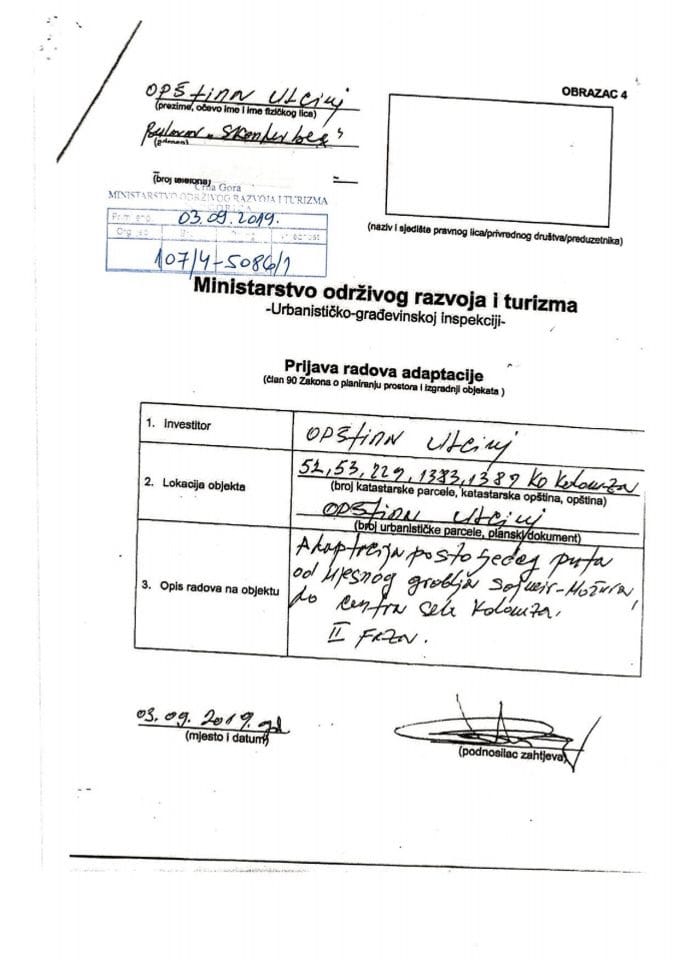 OBRAZAC 4
OPŠTINA ULCINJ
(prezime, očevo ime i ime fizičkog lica)
Bulevar "Skenderbeg"
(adresa)
(broj telefona)
Crna Gora
MINISTARSTVO ODRŽIVOG RAZVOJA I TURIZMA
03.09.2019.
107/4-5086/1
(naziv i sjedište pravnog lica/privrednog društva/preduzetnika)
Ministarstvo održivog razvoja i turizma
-Urbanističko-građevinskoj inspekciji-
Prijava radova adaptacije
(član 90 Zakona o planiranju prostora i izgradnji objekata )
1. Investitor
OPŠTINA ULCINJ
2. Lokacija objekta
52, 53, 229, 1383, 1389 KO Kolomza
(broj katastarske parcele, katastarska opština, opština)
OPŠTINA ULCINJ
(broj urbanističke parcele, planski dokument)
3. Opis radova na objektu
Adaptacija postojećeg puta
od mjesnog groblja -Možura,
do centra sela Kolomza.
II FAZA.
03.09.2019. gd
(mjesto i datum)
(podnosilac zahtjeva)